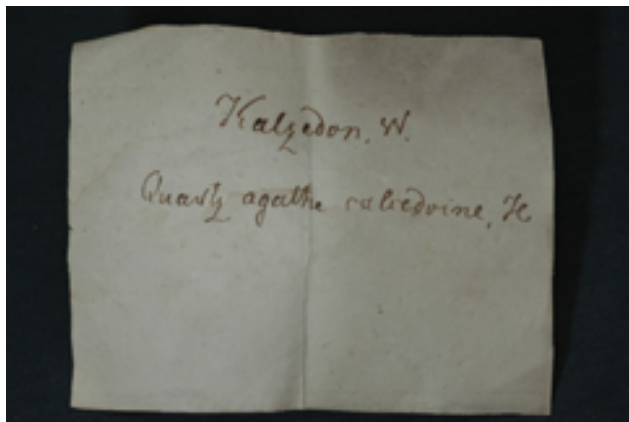 Kalzedon. W.
Quartz agathe calcedoine, H